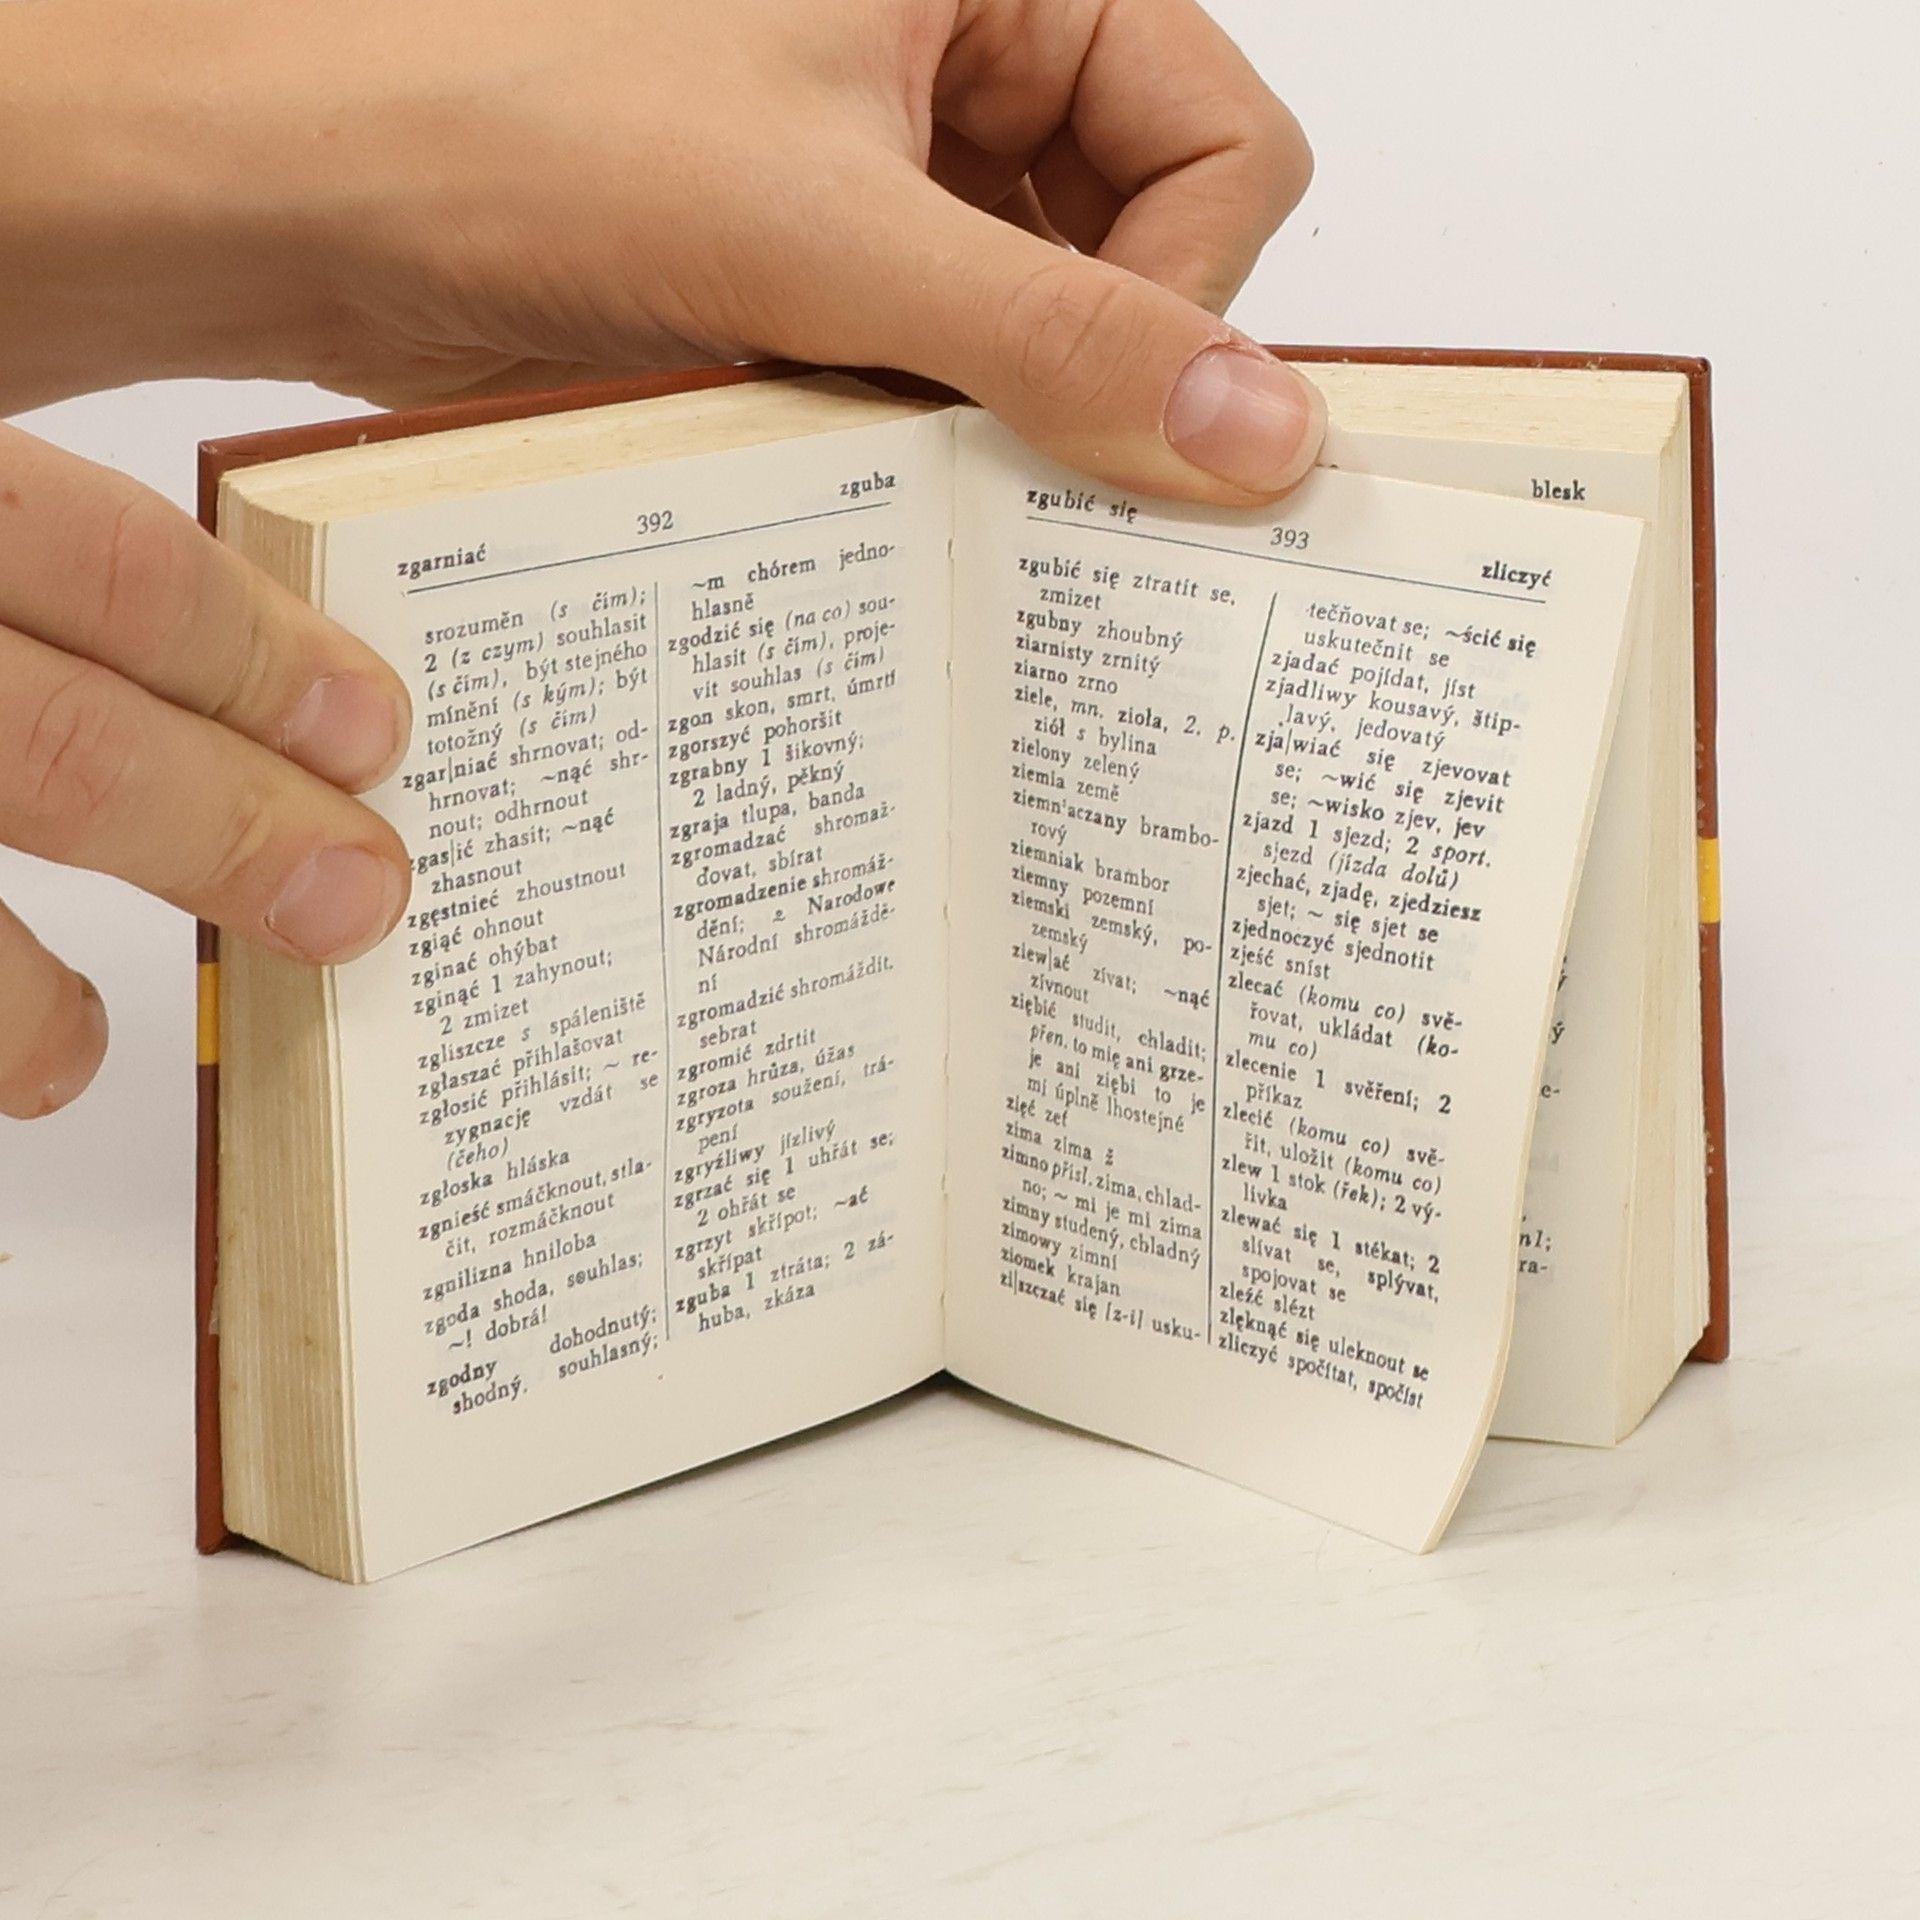 zgarniać 392 zguba
srozuměn (s čím);
2 (z czym) souhlasit
(s čím), být stejného
mínění (s kým); být
totožný (s čím)
zgar|niać shrnovat; od-
hrnovat; ~nąć shr-
nout; odhrnout
zgas|ić zhasit; ~nąć
zhasnout
zgęstnieć zhoustnout
zgiąć ohnout
zginać ohýbat
zginąć 1 zahynout;
2 zmizet
zgliszcze s spáleniště
zgłaszać přihlašovat
zgłosić přihlásit; ~ re-
zygnację vzdát se
(čeho)
zgłoska hláska
zgnieść smáčknout, stla-
čit, rozmáčknout
zgnilizna hniloba
zgoda shoda, souhlas;
~! dobrá!
zgodny dohodnutý;
shodný, souhlasný;
~m chórem jedno-
hlasně
zgodzić się (na co) sou-
hlasit (s čím), proje-
vit souhlas (s čím)
zgon skon, smrt, úmrtí
zgorszyć pohoršit
zgrabny 1 šikovný;
2 ladný, pěkný
zgraja tlupa, banda
zgromadzać shromaž-
ďovat, sbírat
zgromadzenie shromáž-
dění; ~ Narodowe
Národní shromáždě-
ní
zgromadzić shromáždit,
sebrat
zgromić zdrtit
zgroza hrůza, úžas
zgryzota soužení, trá-
pení
zgryźliwy jízlivý
zgrzać się 1 uhřát se;
2 ohřát se
zgrzyt skřípot; ~ać
skřípat
zguba 1 ztráta; 2 zá-
huba, zkáza
zgubić się 393 zliczyć
zgubić się ztratit se,
zmizet
zgubny zhoubný
ziarnisty zrnitý
ziarno zrno
ziele, mn. zioła, 2. p.
ziół s bylina
zielony zelený
ziemla země
ziemn'aczany brambo-
rový
ziemniak brambor
ziemny pozemní
ziemski zemský, po-
zemský
ziew|ać zívat; ~nąć
zívnout
ziębić studit, chladit;
přen. to mię ani grze-
je ani ziębi to je
mi úplně lhostejné
zięć zeť
zima zima ž
zimno přísl. zima, chlad-
no; ~ mi je mi zima
zimny studený, chladný
zimowy zimní
ziomek krajan
zi|szczać się [z-i] usku-
tečňovat se; ~ścić się
uskutečnit se
zjadać pojídat, jíst
zjadliwy kousavý, štip-
lavý, jedovatý
zja|wiać się zjevovat
se; ~wić się zjevit
se; ~wisko zjev, jev
zjazd 1 sjezd; 2 sport.
sjezd (jízda dolů)
zjechać, zjadę, zjedziesz
sjet; ~ się sjet se
zjednoczyć sjednotit
zjeść sníst
zlecać (komu co) svě-
řovat, ukládat (ko-
mu co)
zlecenie 1 svěření; 2
příkaz
zlecić (komu co) svě-
řit, uložit (komu co)
zlew 1 stok (řek); 2 vý-
levka
zlewać się 1 stékat; 2
slívat se, splývat,
spojovat se
zleźć slézt
zlęknąć się uleknout se
zliczyć spočítat, spočíst
blesk